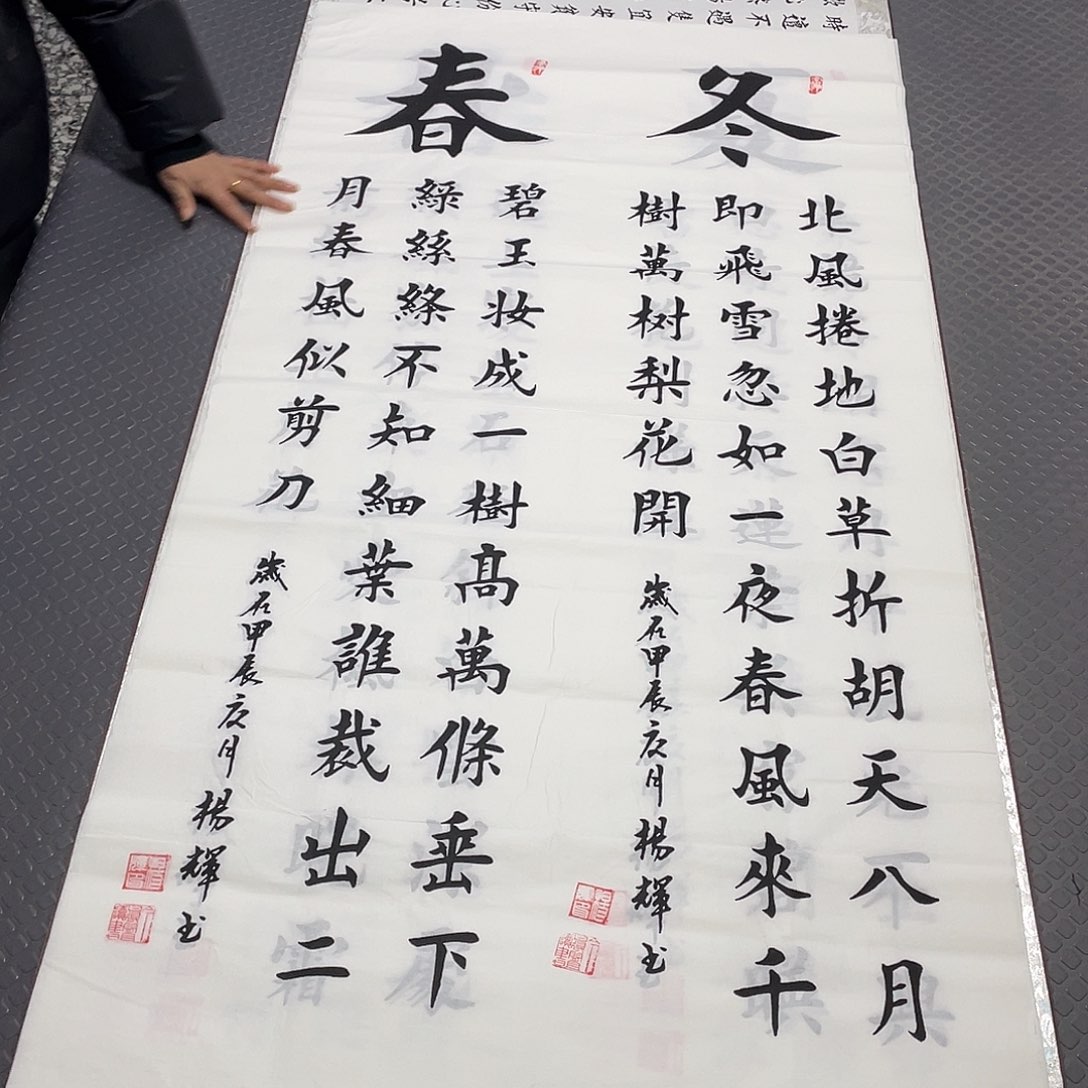 時遭不遇隻宜安貧守份
冬
北風捲地白草折胡天八月
即飛雪忽如一夜春風來千
樹萬树梨花開
歲在甲辰月楊輝书
春
碧王妆成一樹高萬條垂下
綠絲絛不知細葉誰裁出二
月春風似剪刀
歲在甲辰月楊輝书